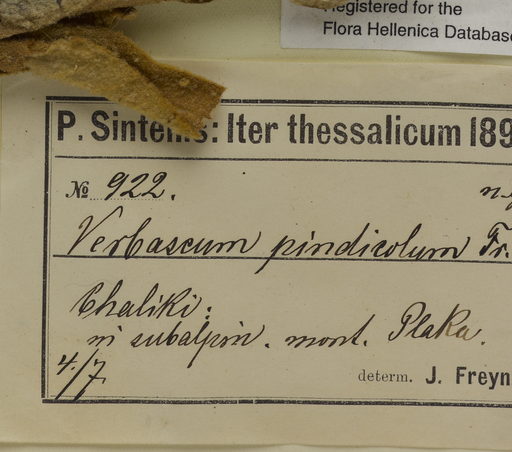 Registered for the
Flora Hellenica Database
P. Sintenis: Iter thessalicum 189
№ 922.
Verbascum pindicolum Fr.
Chaliki:
in subalpin. mont. Plaka.
4/7.
determ. J. Freyn